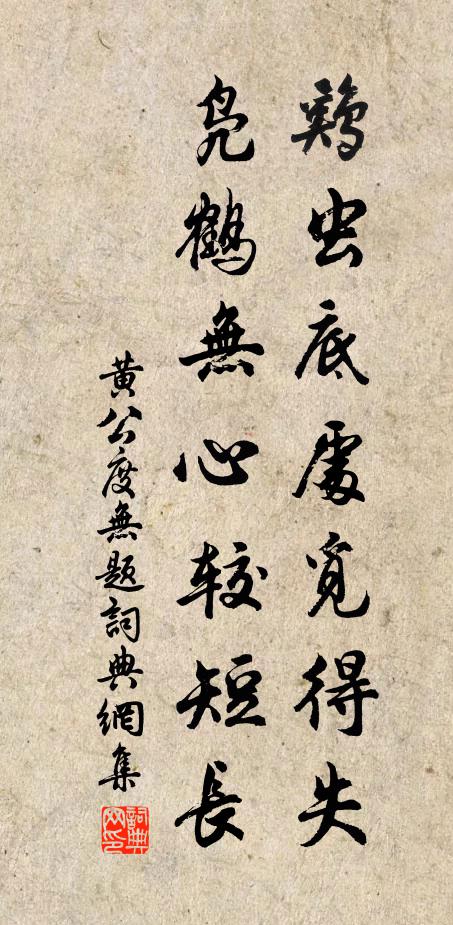 鷄虫底處覓得失
凫鶴無心較短長
黄公度無题詞典網集
詞典网印